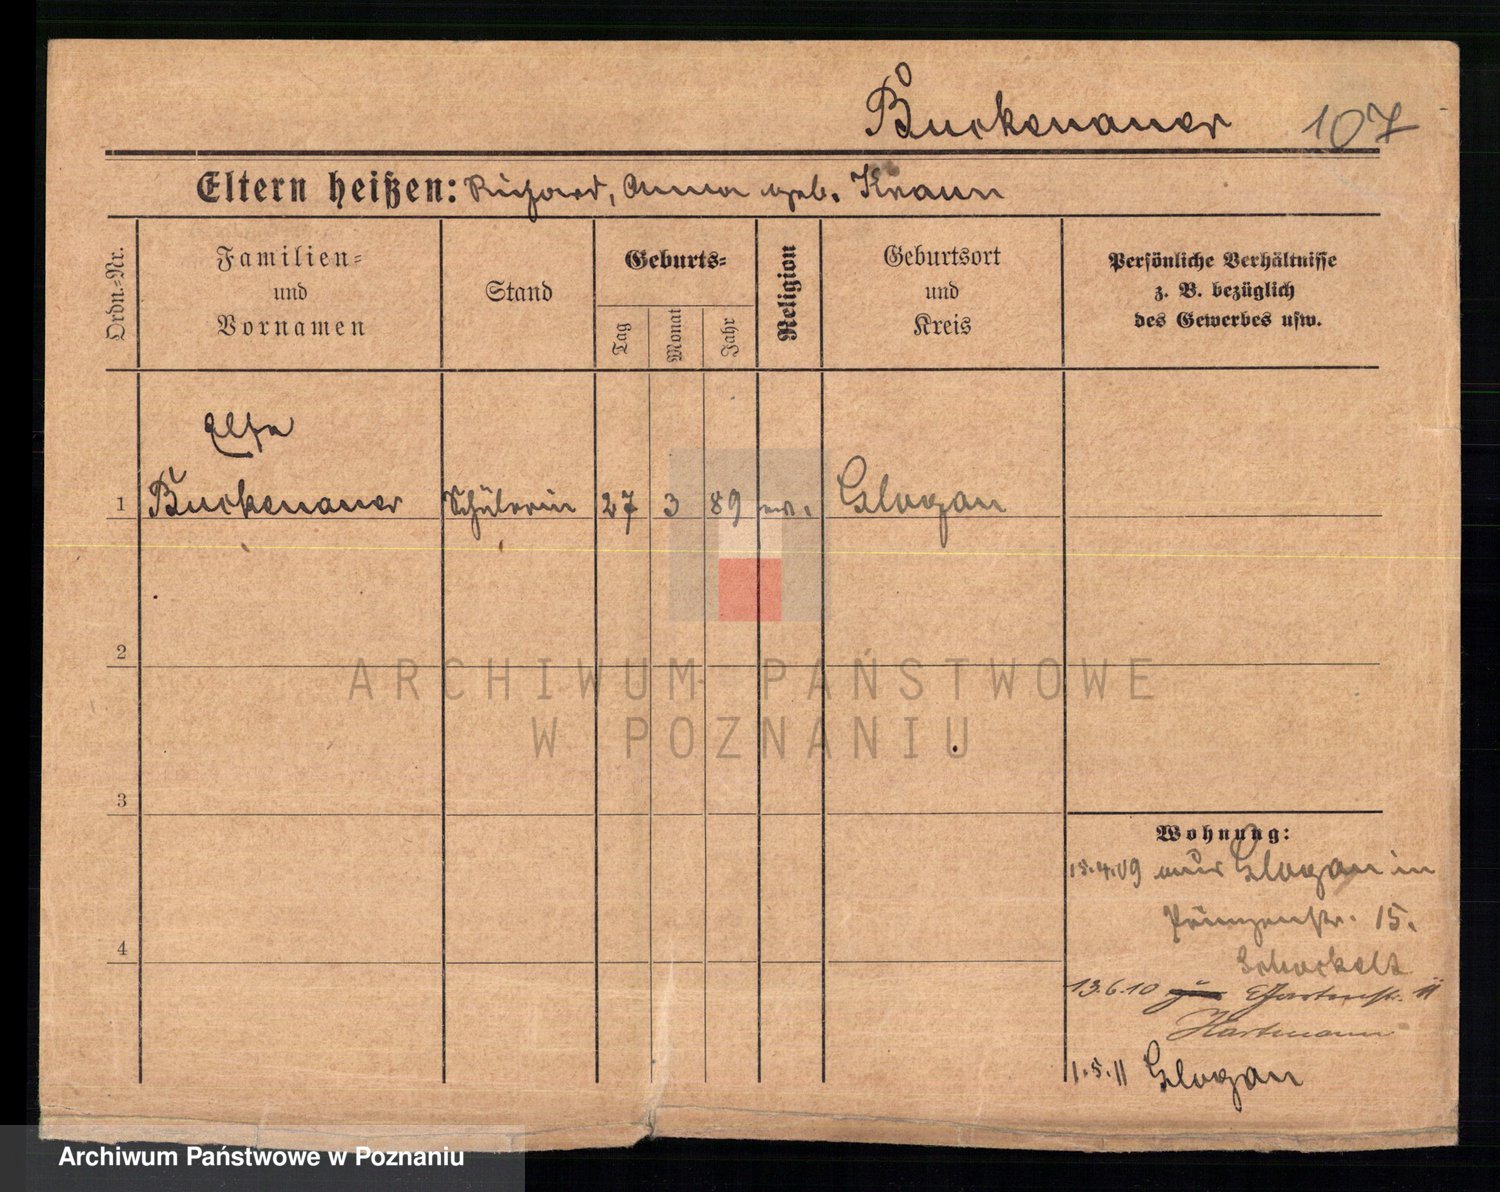 Buckenauer 107
Eltern heißen: Richard, Anna geb. Knaun
Ordn.-Nr.
Familien-
und
Vornamen
Stand
Geburts-
Tag
Monat
Jahr
Religion
Geburtsort
und
Kreis
Persönliche Verhältnisse
z. B. bezüglich
des Gewerbes usw.
Elsa
1 Buckenauer Schülerin 27 3 89 ev. Glogau
2
3
4
Wohnung:
15.4.09 aus Glogau in
Prinzenstr. 15.
13.6.10 Gartenstr. 11
Hartmann
1.5.11 Glogau
ARCHIWUM PAŃSTWOWE
W POZNANIU
Archiwum Państwowe w Poznaniu